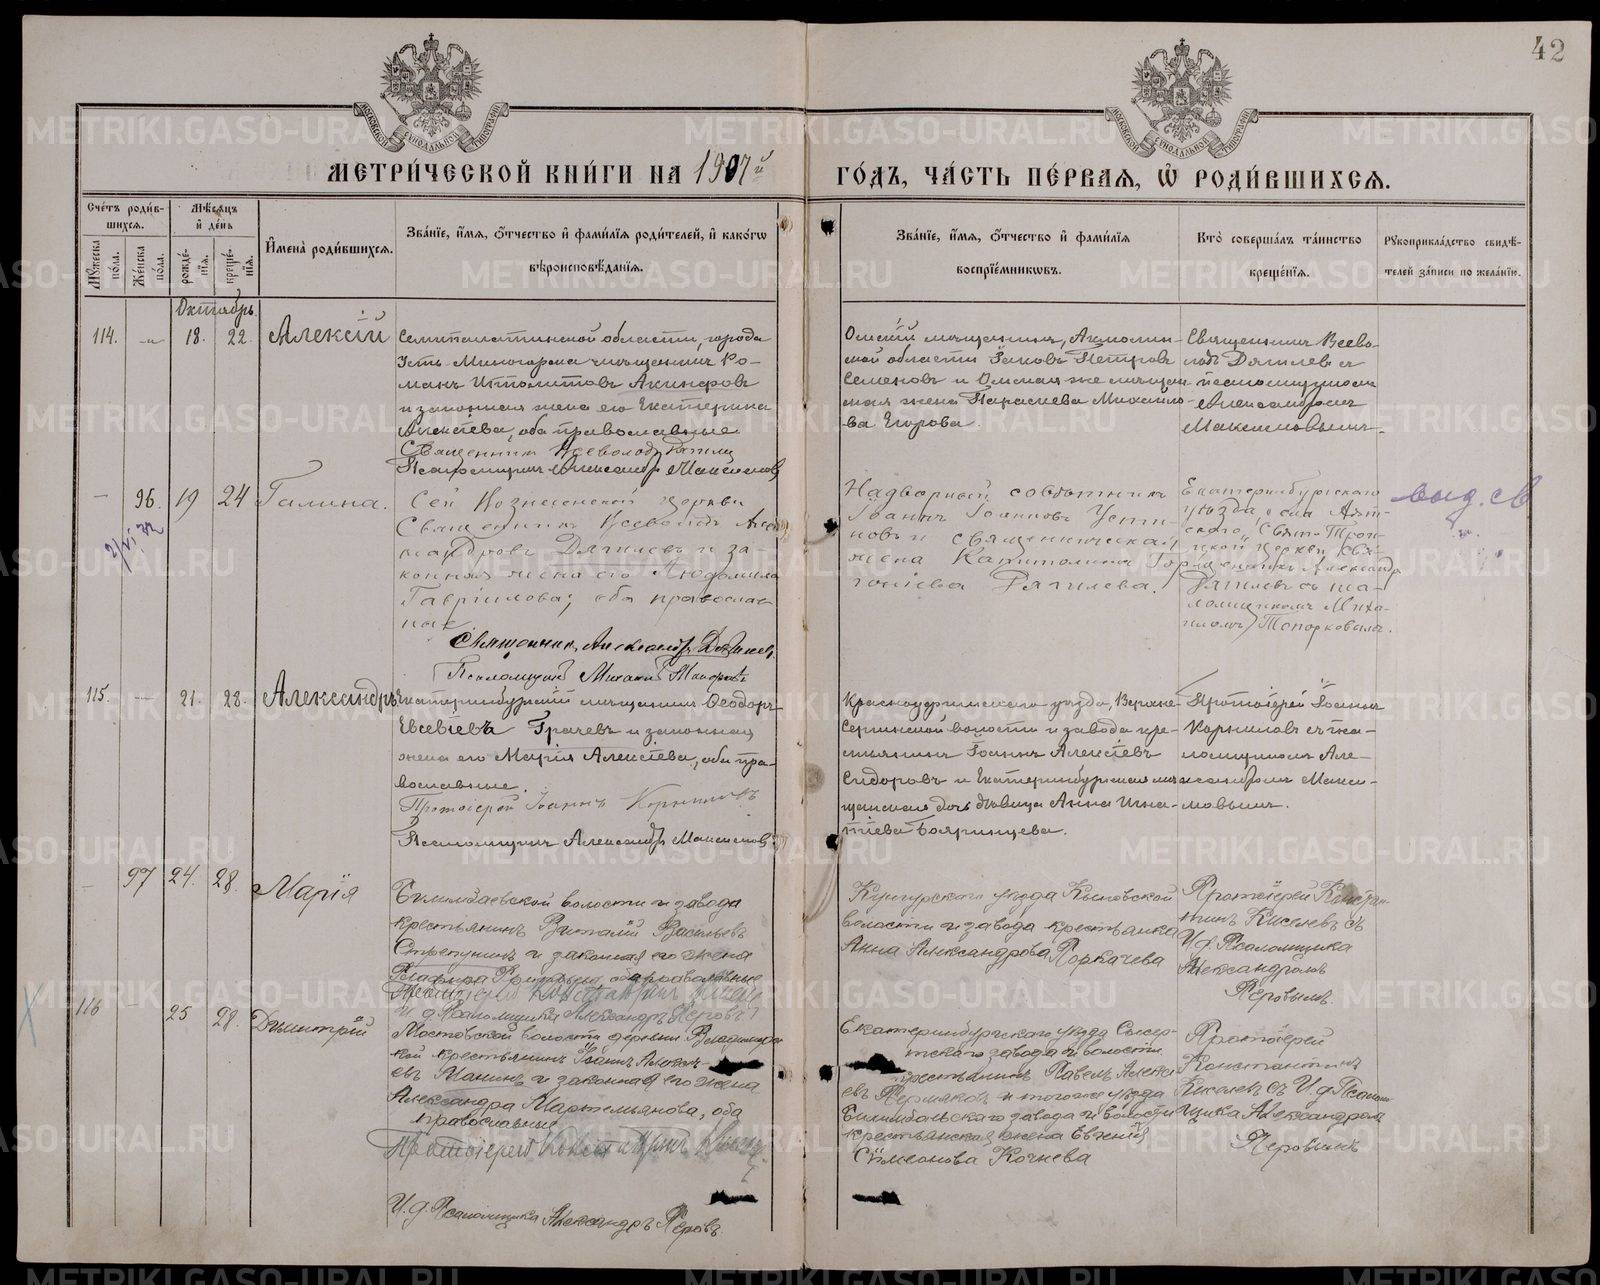 42
МЕТРИ́ЧЕСКОЙ КНИ́ГИ НА 1907й
ГО́ДЪ, ЧА́СТЬ ПЕ́РВАЯ, Ѡ РОДИ́ВШИХСѦ.
Сче́тъ роди́в-
шихсѧ.
Мꙋ́жеска по́ла.
Же́нска по́ла.
Мѣ́сѧцъ и де́нь
рожде́-
нїѧ.
креще́-
нїѧ.
И҆мена̀ роди́вшихсѧ.
Зва́нїе, и҆́мѧ, ѻ҆́тчество и҆ фами́лїѧ роди́телей, и҆ како́гѡ
вѣроисповѣ́данїѧ.
Зва́нїе, и҆́мѧ, ѻ҆́тчество и҆ фами́лїѧ
воспрїе́мникѡвъ.
Кто̀ соверша́лъ та́инство
креще́нїѧ.
Рꙋкоприкла́дство свидѣ́-
телей за́писи по жела́нїю.
Октябрь.
114. — 18. 22. Алексій
Семипалатинской области, города
Усть-Каменогорска мѣщанинъ Ро-
манъ Иполитовъ Акинфовъ
и законная жена его Екатерина
Алексѣева, оба православные.
Священникъ Всеволодъ Дягилев
Псаломщикъ Александр Максимовъ
Омскій мѣщанинъ, Акмолин-
ской области Іаковъ Петровъ
Семеновъ и Омская же мѣщан-
ская жена Параскева Михайло-
ва Егорова.
Священникъ Всево-
лодъ Дягилевъ съ
псаломщикомъ
Александромъ
Максимовымъ.
— 96. 19 24 Галина.
Сей Вознесенской церкви
Священникъ Всеволодъ Алек-
сандровъ Дягилевъ и за-
конная жена его Людмила
Гавріилова, оба православ-
ные
Священникъ Александръ Дягилевъ.
Псаломщикъ Михаилъ Топорковъ
Надворный совѣтникъ
Іоаннъ Іоанновъ Усти-
новъ и священническая
жена Капитолина
Дягилева.
Екатеринбургскаго
уѣзда, села Аят-
скаго, Свято-Трои-
цкой церкви Свя-
щенникъ Александръ
Дягилевъ съ пса-
ломщикомъ Миха-
иломъ Топорковымъ.
выд. св
115. — 21. 28. Александръ
Екатеринбургскій мѣщанинъ Ѳеодоръ
Евсевіевъ Грачевъ и законная
жена его Марія Алексѣева, оба пра-
вославные.
Протоіерей Іоаннъ Корниловъ
Псаломщикъ Александр Максимовъ.
Красноуфимскаго уѣзда, Верхне-
Сергинской волости и завода кре-
стьянинъ Іоаннъ Алексѣевъ
Сидоровъ и Екатеринбургская мѣ-
щанская дочь дѣвица Анна Игна-
тіева Бояринцева.
Протоіерей Іоаннъ
Корниловъ съ пса-
ломщикомъ Але-
ксандромъ Макси-
мовымъ.
— 97 24. 28. Марія
Билимбаевской волости и завода
крестьянинъ Виталій Васильевъ
и законная его жена
оба православные
Протоіерей Константинъ Киселевъ
И. д. Псаломщика Александръ Перовъ
Кунгурскаго уѣзда Кыновской
волости и завода крестьянка
Анна Александрова Поркачева
Протоіерей Констан-
тинъ Киселевъ съ
И. д. Псаломщика
Александромъ
Перовымъ.
116 — 25 28. Димитрій
Мостовской волости деревни Владимирс-
кой крестьянинъ Іоаннъ Алексѣ-
евъ Манинъ и законная его жена
Александра Мартемьянова, оба
православные
Протоіерей Константинъ Киселевъ
И. д. Псаломщика Александръ Перовъ
Екатеринбургскаго уѣзда Сысер-
тскаго завода и волости
крестьянинъ Павелъ Алексѣ-
евъ Пермяковъ и того же уѣзда
Билимбаевскаго завода и волости
крестьянская жена Евгенія
Симеонова Кочнева
Протоіерей
Константинъ
Киселевъ съ И. д. Псалом-
щика Александромъ
Перовымъ
METRIKI.GASO-URAL.RU